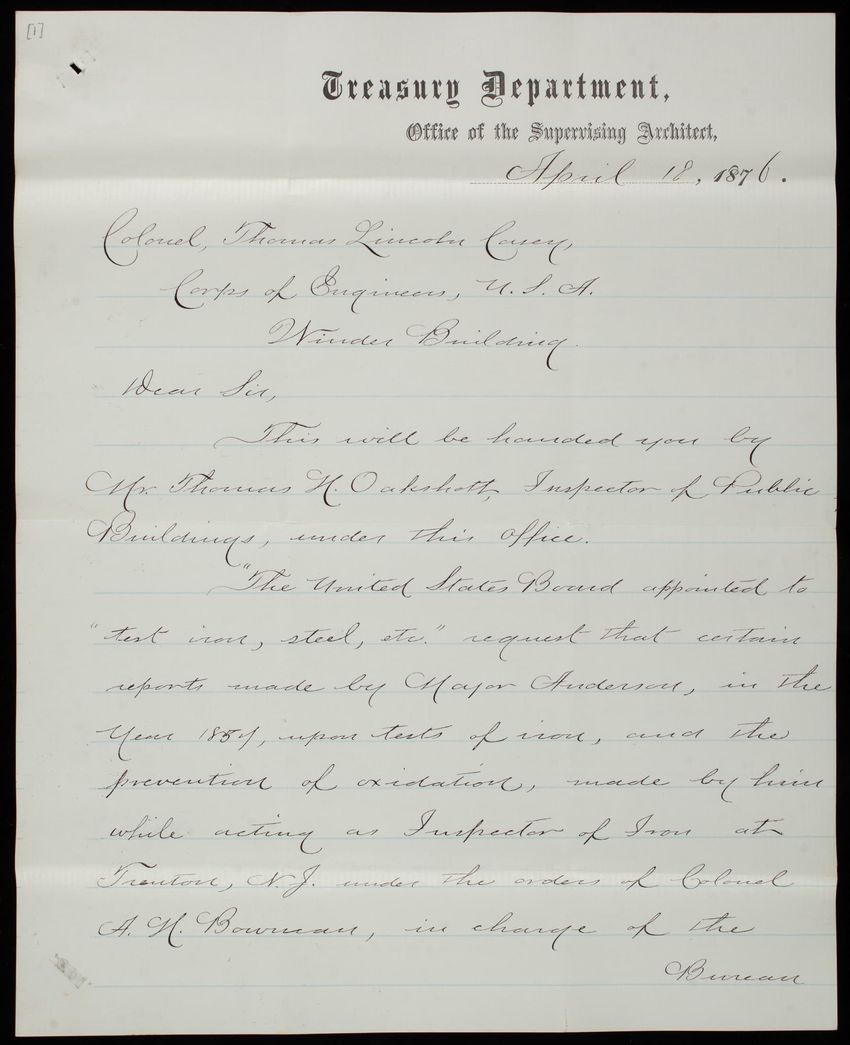 [1]
Treasury Department,
Office of the Supervising Architect,
April 18, 1876.
Colonel, Thomas Lincoln Casey,
Corps of Engineers, U. S. A.
Winder Building.
Dear Sir,
This will be handed you by
Mr. Thomas H. Oakshott, Inspector of Public
Buildings, under this office.
"The United States Board appointed to
"test iron, steel, etc." request that certain
reports made by Major Anderson, in the
Year 1857, upon tests of iron, and the
prevention of oxidation, made by him
while acting as Inspector of Iron at
Trenton, N. J. under the orders of Colonel
A. H. Bowman, in charge of the
Bureau